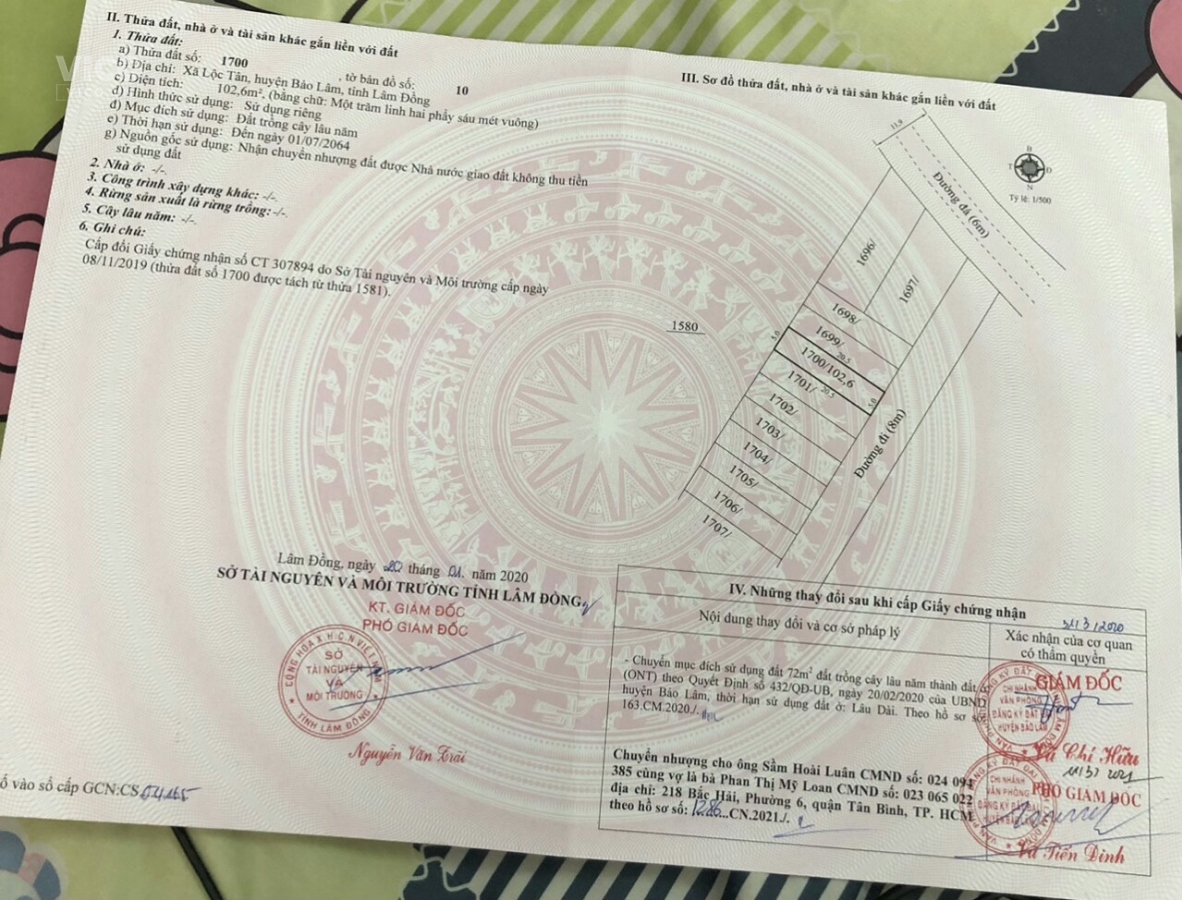 II. Thửa đất, nhà ở và tài sản khác gắn liền với đất
1. Thửa đất:
a) Thửa đất số: 1700 , tờ bản đồ số: 10
b) Địa chỉ: Xã Lộc Tân, huyện Bảo Lâm, tỉnh Lâm Đồng
c) Diện tích: 102,6m², (bằng chữ: Một trăm linh hai phẩy sáu mét vuông)
d) Hình thức sử dụng: Sử dụng riêng
đ) Mục đích sử dụng: Đất trồng cây lâu năm
e) Thời hạn sử dụng: Đến ngày 01/07/2064
g) Nguồn gốc sử dụng: Nhận chuyển nhượng đất được Nhà nước giao đất không thu tiền
sử dụng đất
2. Nhà ở: -/-.
3. Công trình xây dựng khác: -/-.
4. Rừng sản xuất là rừng trồng: -/-.
5. Cây lâu năm: -/-.
6. Ghi chú:
Cấp đổi Giấy chứng nhận số CT 307894 do Sở Tài nguyên và Môi trường cấp ngày
08/11/2019 (thửa đất số 1700 được tách từ thửa 1581).
Lâm Đồng, ngày 20 tháng 01. năm 2020
SỞ TÀI NGUYÊN VÀ MÔI TRƯỜNG TỈNH LÂM ĐỒNG
KT. GIÁM ĐỐC
PHÓ GIÁM ĐỐC
CỘNG HÒA X.H.C.N VIỆT NAM
SỞ
TÀI NGUYÊN
VÀ
MÔI TRƯỜNG
TỈNH LÂM ĐỒNG
Nguyễn Văn Trãi
ố vào sổ cấp GCN:CS 04165
III. Sơ đồ thửa đất, nhà ở và tài sản khác gắn liền với đất
11.9
B
T
Đ
N
Tỷ lệ: 1/500
Đường đá (6m)
1696/
1697/
1698/
1580
1699/
5.0
20.5
1700/102,6
1701/
20.5
5.0
1702/
1703/
1704/
1705/
1706/
1707/
Đường đi (8m)
IV. Những thay đổi sau khi cấp Giấy chứng nhận
Nội dung thay đổi và cơ sở pháp lý
Xác nhận của cơ quan
có thẩm quyền
- Chuyển mục đích sử dụng đất 72m² đất trồng cây lâu năm thành đất ở
(ONT) theo Quyết Định số 432/QĐ-UB, ngày 20/02/2020 của UBND
huyện Bảo Lâm, thời hạn sử dụng đất ở: Lâu Dài. Theo hồ sơ số
163.CM.2020./.
GIÁM ĐỐC
CHI NHÁNH
VĂN PHÒNG
ĐĂNG KÝ ĐẤT ĐAI
HUYỆN BẢO LÂM
Vũ Chí Hữu
Chuyển nhượng cho ông Sầm Hoài Luân CMND số: 024 094
385 cùng vợ là bà Phan Thị Mỹ Loan CMND số: 023 065 022
địa chỉ: 218 Bắc Hải, Phường 6, quận Tân Bình, TP. HCM
theo hồ sơ số: 1286...CN.2021./.
PHÓ GIÁM ĐỐC
CHI NHÁNH
VĂN PHÒNG
ĐĂNG KÝ ĐẤT ĐAI
HUYỆN BẢO LÂM
Vũ Tiến Định